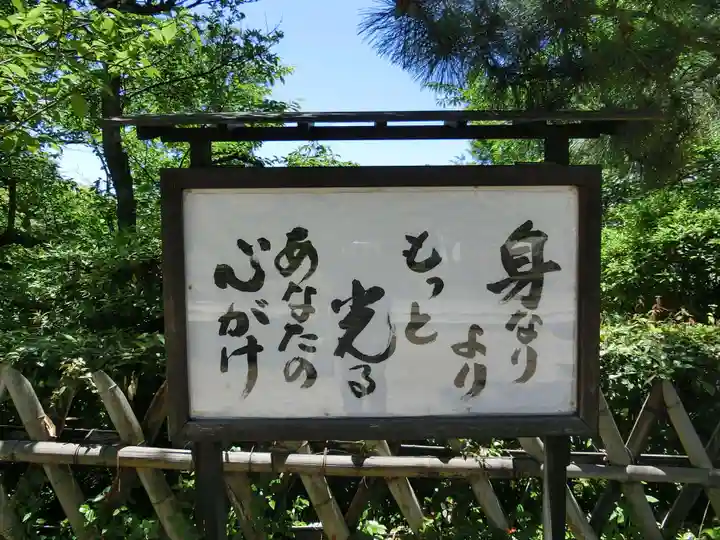 身なり
より
もっと
光る
あなたの
心がけ